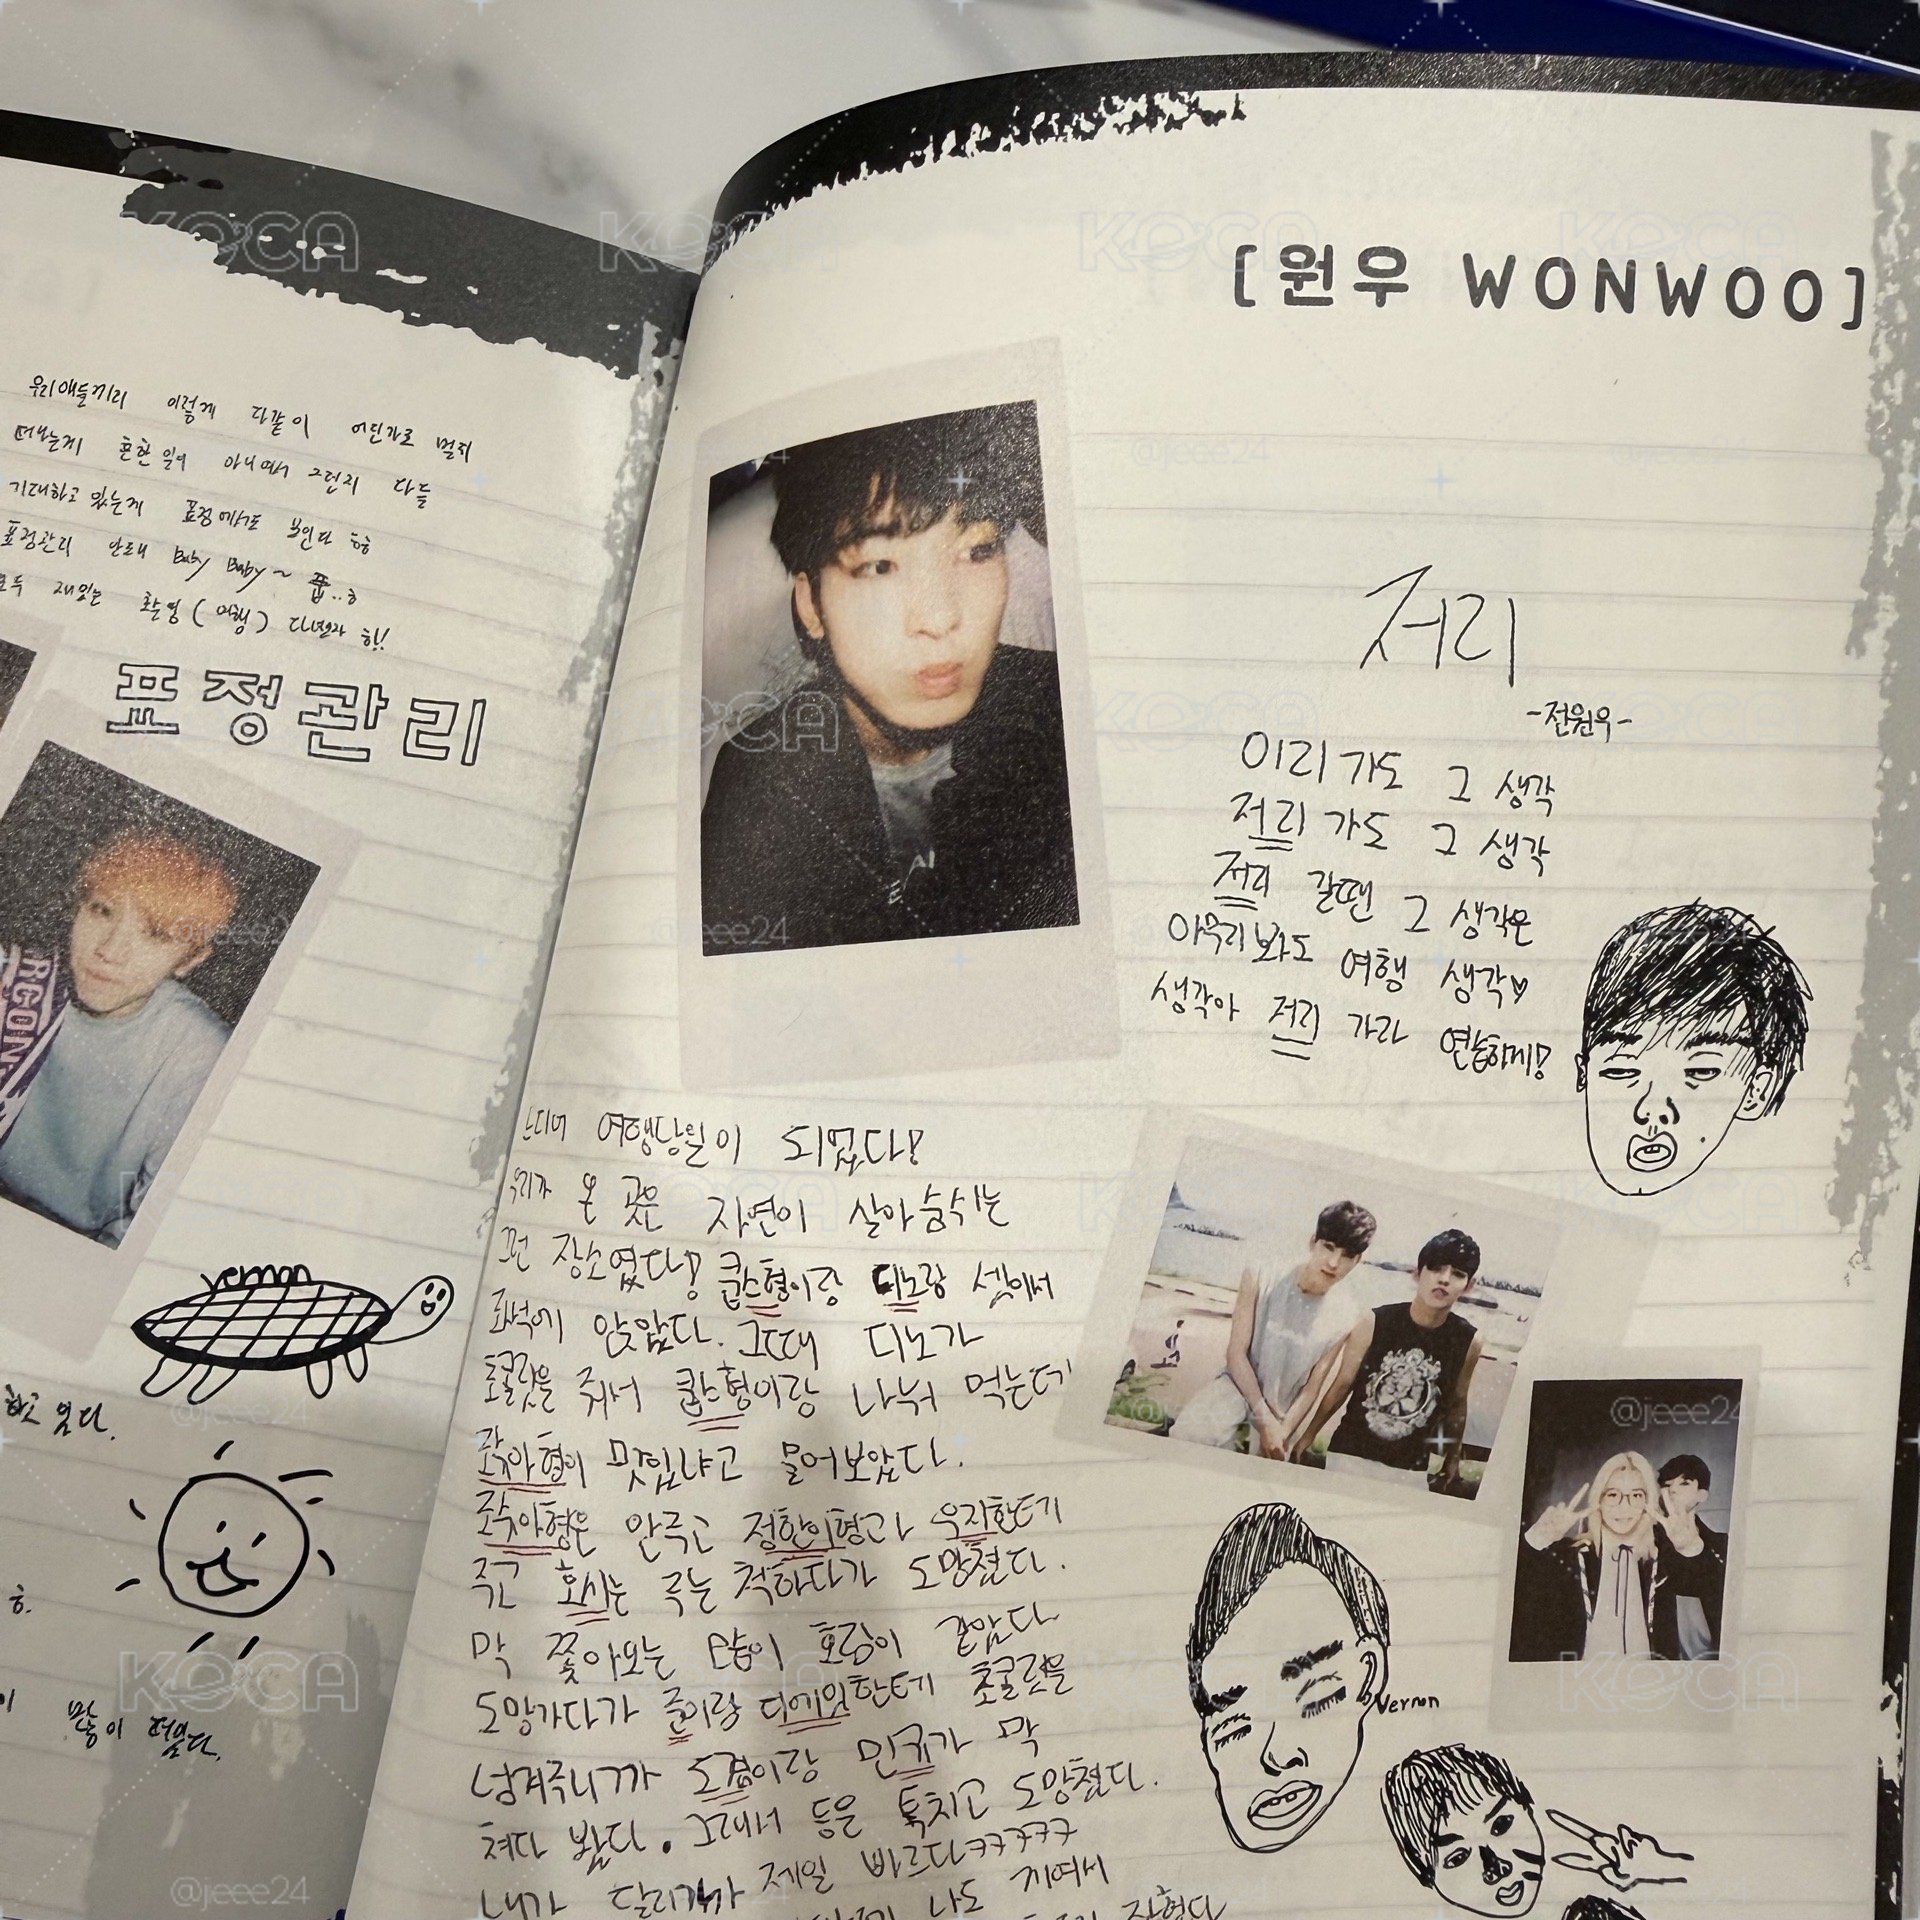 우리애들끼리 이렇게 다같이 어딘가로 멀리
떠나는게 흔한 일이 아니여서 그런지 다들
기대하고 있는게 표정에서도 보인다 ㅎㅎ
표정관리 안돼 Baby Baby~ 풉..ㅎ
모두 재밌는 촬영(여행) 다녀오자 힛!!
표정관리
RGON
vernon
하고 있다.
ㅎ.
이
많이 덥다.
[원우 WONWOO]
저리
-전원우-
이리 가도 그 생각
저리 가도 그 생각
저리 갈땐 그 생각은
아무리봐도 여행 생각♥
생각아 저리 가라 연습하게!
드디어 여행당일이 되었다!
우리가 온 곳은 자연이 살아숨쉬는
그런 장소였다! 쿱스형이랑 디노랑 셋이서
좌석에 앉았다. 그때 디노가
초콜릿을 줘서 쿱스형이랑 나눠 먹는데
죠슈아형이 맛있냐고 물어보았다.
죠슈아형은 안주고 정한이형과 우지한테기
주고 호시는 주는 척하다가 도망쳤다.
막 쫓아오는 몸이 호랑이 같았다
도망가다가 준이랑 디에잇한테기 초콜릿을
넘겨주니까 도겸이랑 민규가 막
쳐다 봤다. 그래서 등을 툭치고 도망쳤다.
내가 달리기가 제일 빠르다ㅋㅋㅋㅋㅋ
나도 끼여서
Vernon
KOCA
KOCA
KOCA
KOCA
KOCA
KOCA
KOCA
@jeee24
@jeee24
@jeee24
@jeee24
@jeee24
@jeee24